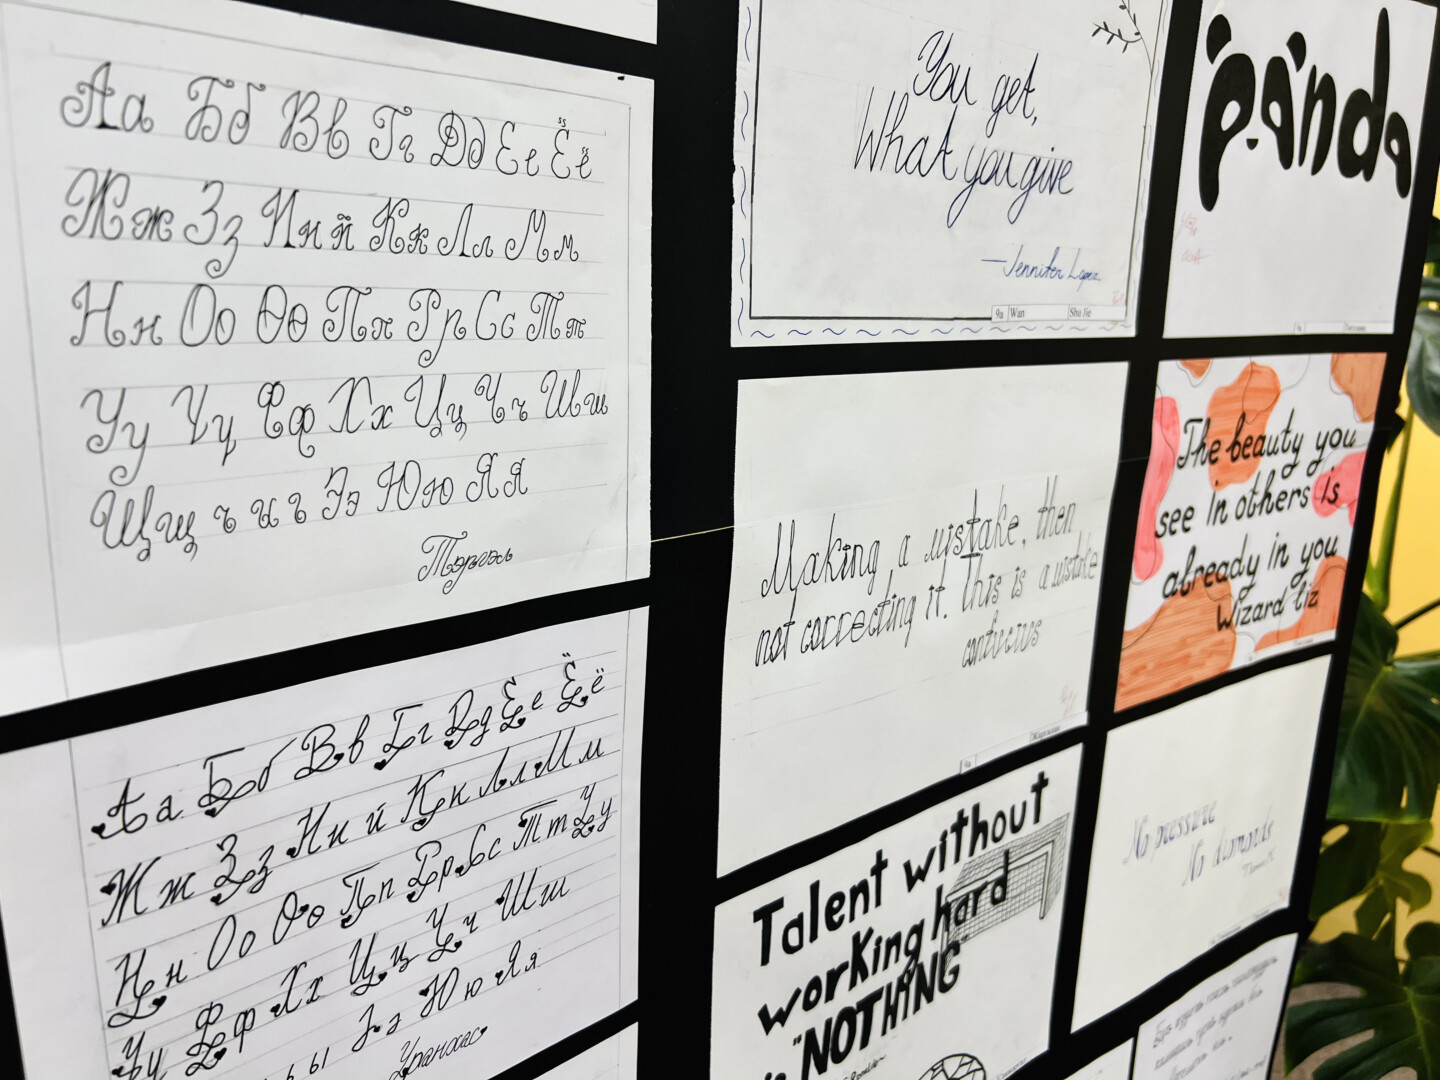 Аа Бб Вв Гг Дд Ее Ёё
Жж Зз Ии й Кк Лл Мм
Нн Оо Өө Пп Рр Сс Тт
Уу Үү Фф Хх Цц Чч Шш
Щщ ъ ы ь Ээ Юю Яя
Тэргэл
Аа Бб Вв Гг Дд Ее Ёё
Жж Зз Ии й Кк Лл Мм
Нн Оо Өө Пп Рр Сс Тт Уу
Үү Фф Хх Цц Чч Шш
ь ы Ээ Юю Яя
Уранхас
You get,
What you give
—Jennifer Lopez
9a Wan Shu Jie
panda
Making a mistake, then
not correcting it. This is a mistake
confucius
9a
The beauty you
see in others is
already in you
Wizard Liz
Talent without
working hard
is "NOTHING"
No pressure
No diamonds